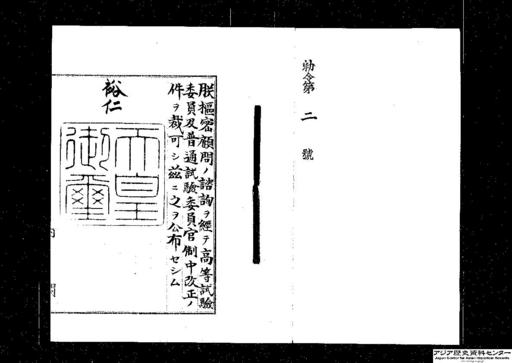 勅令第二號
朕樞密顧問ノ諮詢ヲ經テ高等試驗
委員及普通試驗委員官制中改正ノ
件ヲ裁可シ茲ニ之ヲ公布セシム
裕仁
天皇
御璽
内閣
アジア歴史資料センター
Japan Center for Asian Historical Records